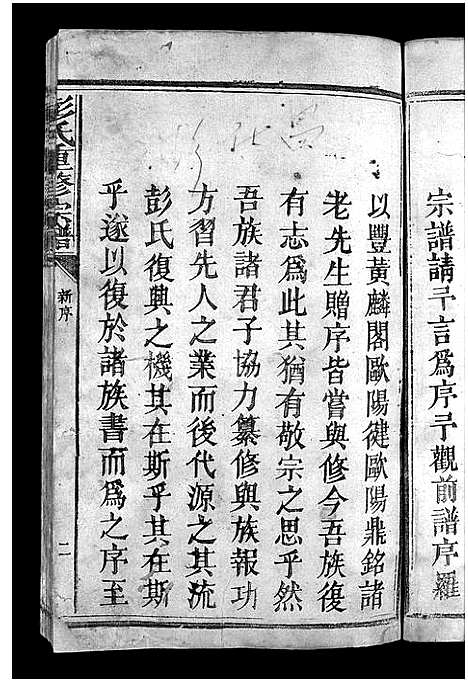 宗譜請予言爲序予觀前譜序羅
以豐黃麟閣歐陽健歐陽鼎銘諸
老先生贈序皆嘗與修今吾族復
有志爲此其猶有敬宗之思乎然
吾族諸君子協力纂修與族報功
方習先人之業而後代源之其流
彭氏復興之機其在斯乎其在斯
乎遂以復於諸族書而爲之序至
彭氏重修宗譜
新序
二